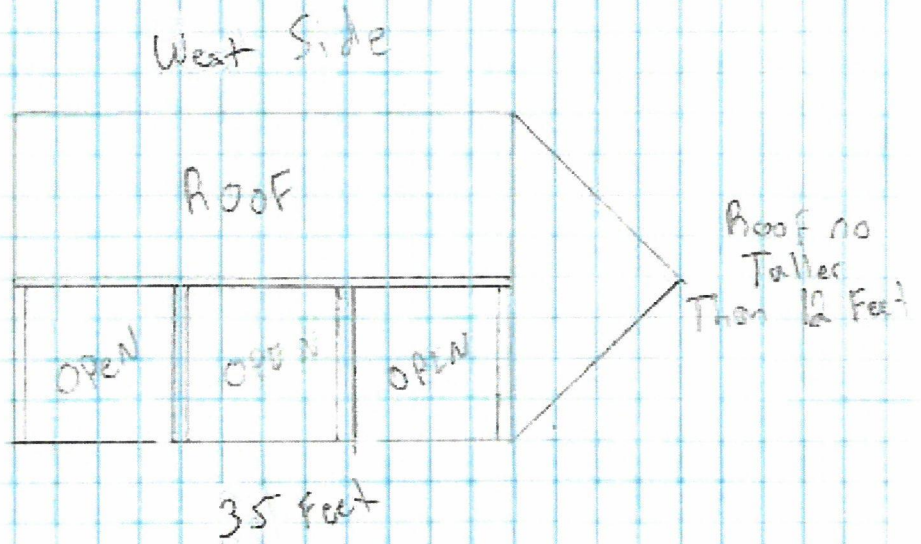 West Side
ROOF
Roof no
Taller
Than 12 Feet
OPEN OPEN OPEN
35 Feet